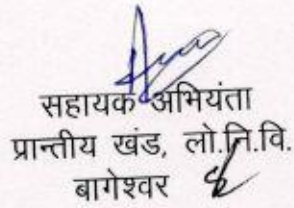 सहायक अभियंता
प्रान्तीय खंड, लो.नि.वि.
बागेश्वर